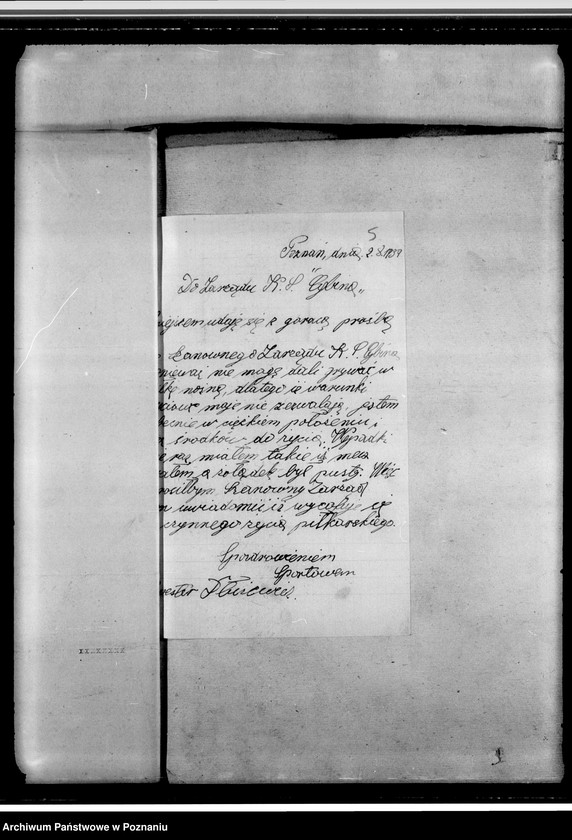 5
Poznań, dnia, 2.8.1939
Do Zarządu K. S. "Cybina„
niejszem udaję się z gorącą prośbą
Szanownego Zarządu K. S. Cybina
nieważ nie mogę dali grywać w
kę nożną, dlatego iż warunki
ciowe moje nie zezwalają, jestem
becnie w ciężkiem położeniu,
z środków do życia. Wypadki
raz miałem takie iż mecz
ałem a żołądek był pusty. Więc
rosiłbym Szanowny Zarząd
uwiadomić iż wycofuję się
czynnego życia piłkarskiego.
Spozdrowieniem
Sportowem
wester
xxxxxxxx
Archiwum Państwowe w Poznaniu